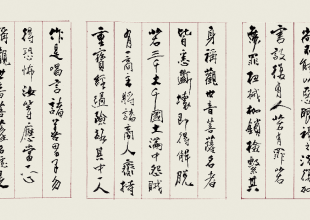 不能以惡眼視之況復加
害設復有人若有罪若
無罪杻械枷鎖檢繫其
身稱觀世音菩薩名者
皆悉斷壞即得解脫
若三千大千國土滿中怨賊
有一商主將諸商人齎持
重寶經過險路其中一人
作是唱言諸善男子勿
得恐怖汝等應當一心
稱觀世音菩薩名號是